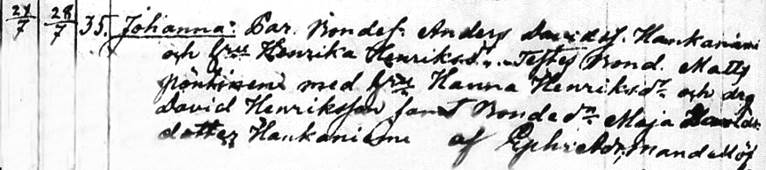 27/7 28/7 35. Johanna: Par. Bondes. Anders Davidsf. Haukaniemi
och fru Henrika Henriksdr. Testes Bond. Matts
med fru Hanna Henriksdr. och drg
David Henriksson samt Bondedn Maja Davids-
dotter Haukaniemi af